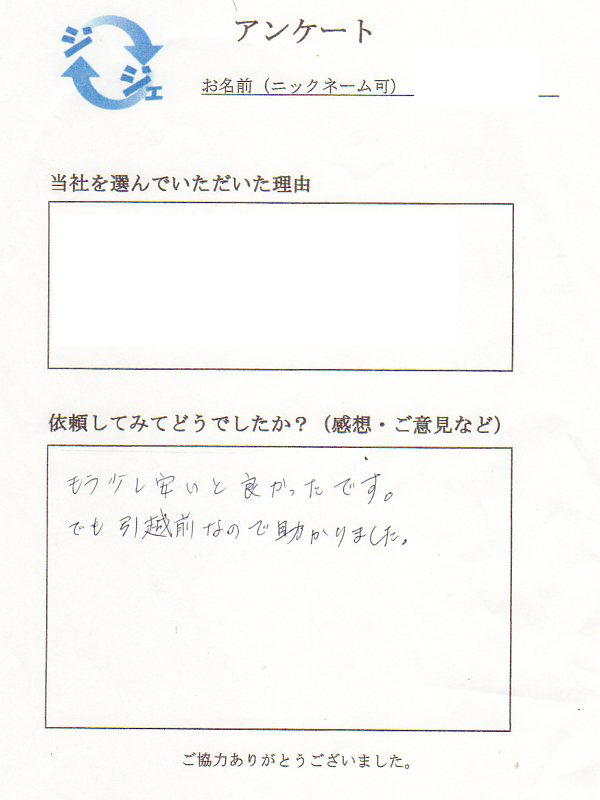 ジジェ
アンケート
お名前（ニックネーム可）
当社を選んでいただいた理由
依頼してみてどうでしたか？（感想・ご意見など）
もう少し安いと良かったです。
でも引越前なので助かりました。
ご協力ありがとうございました。